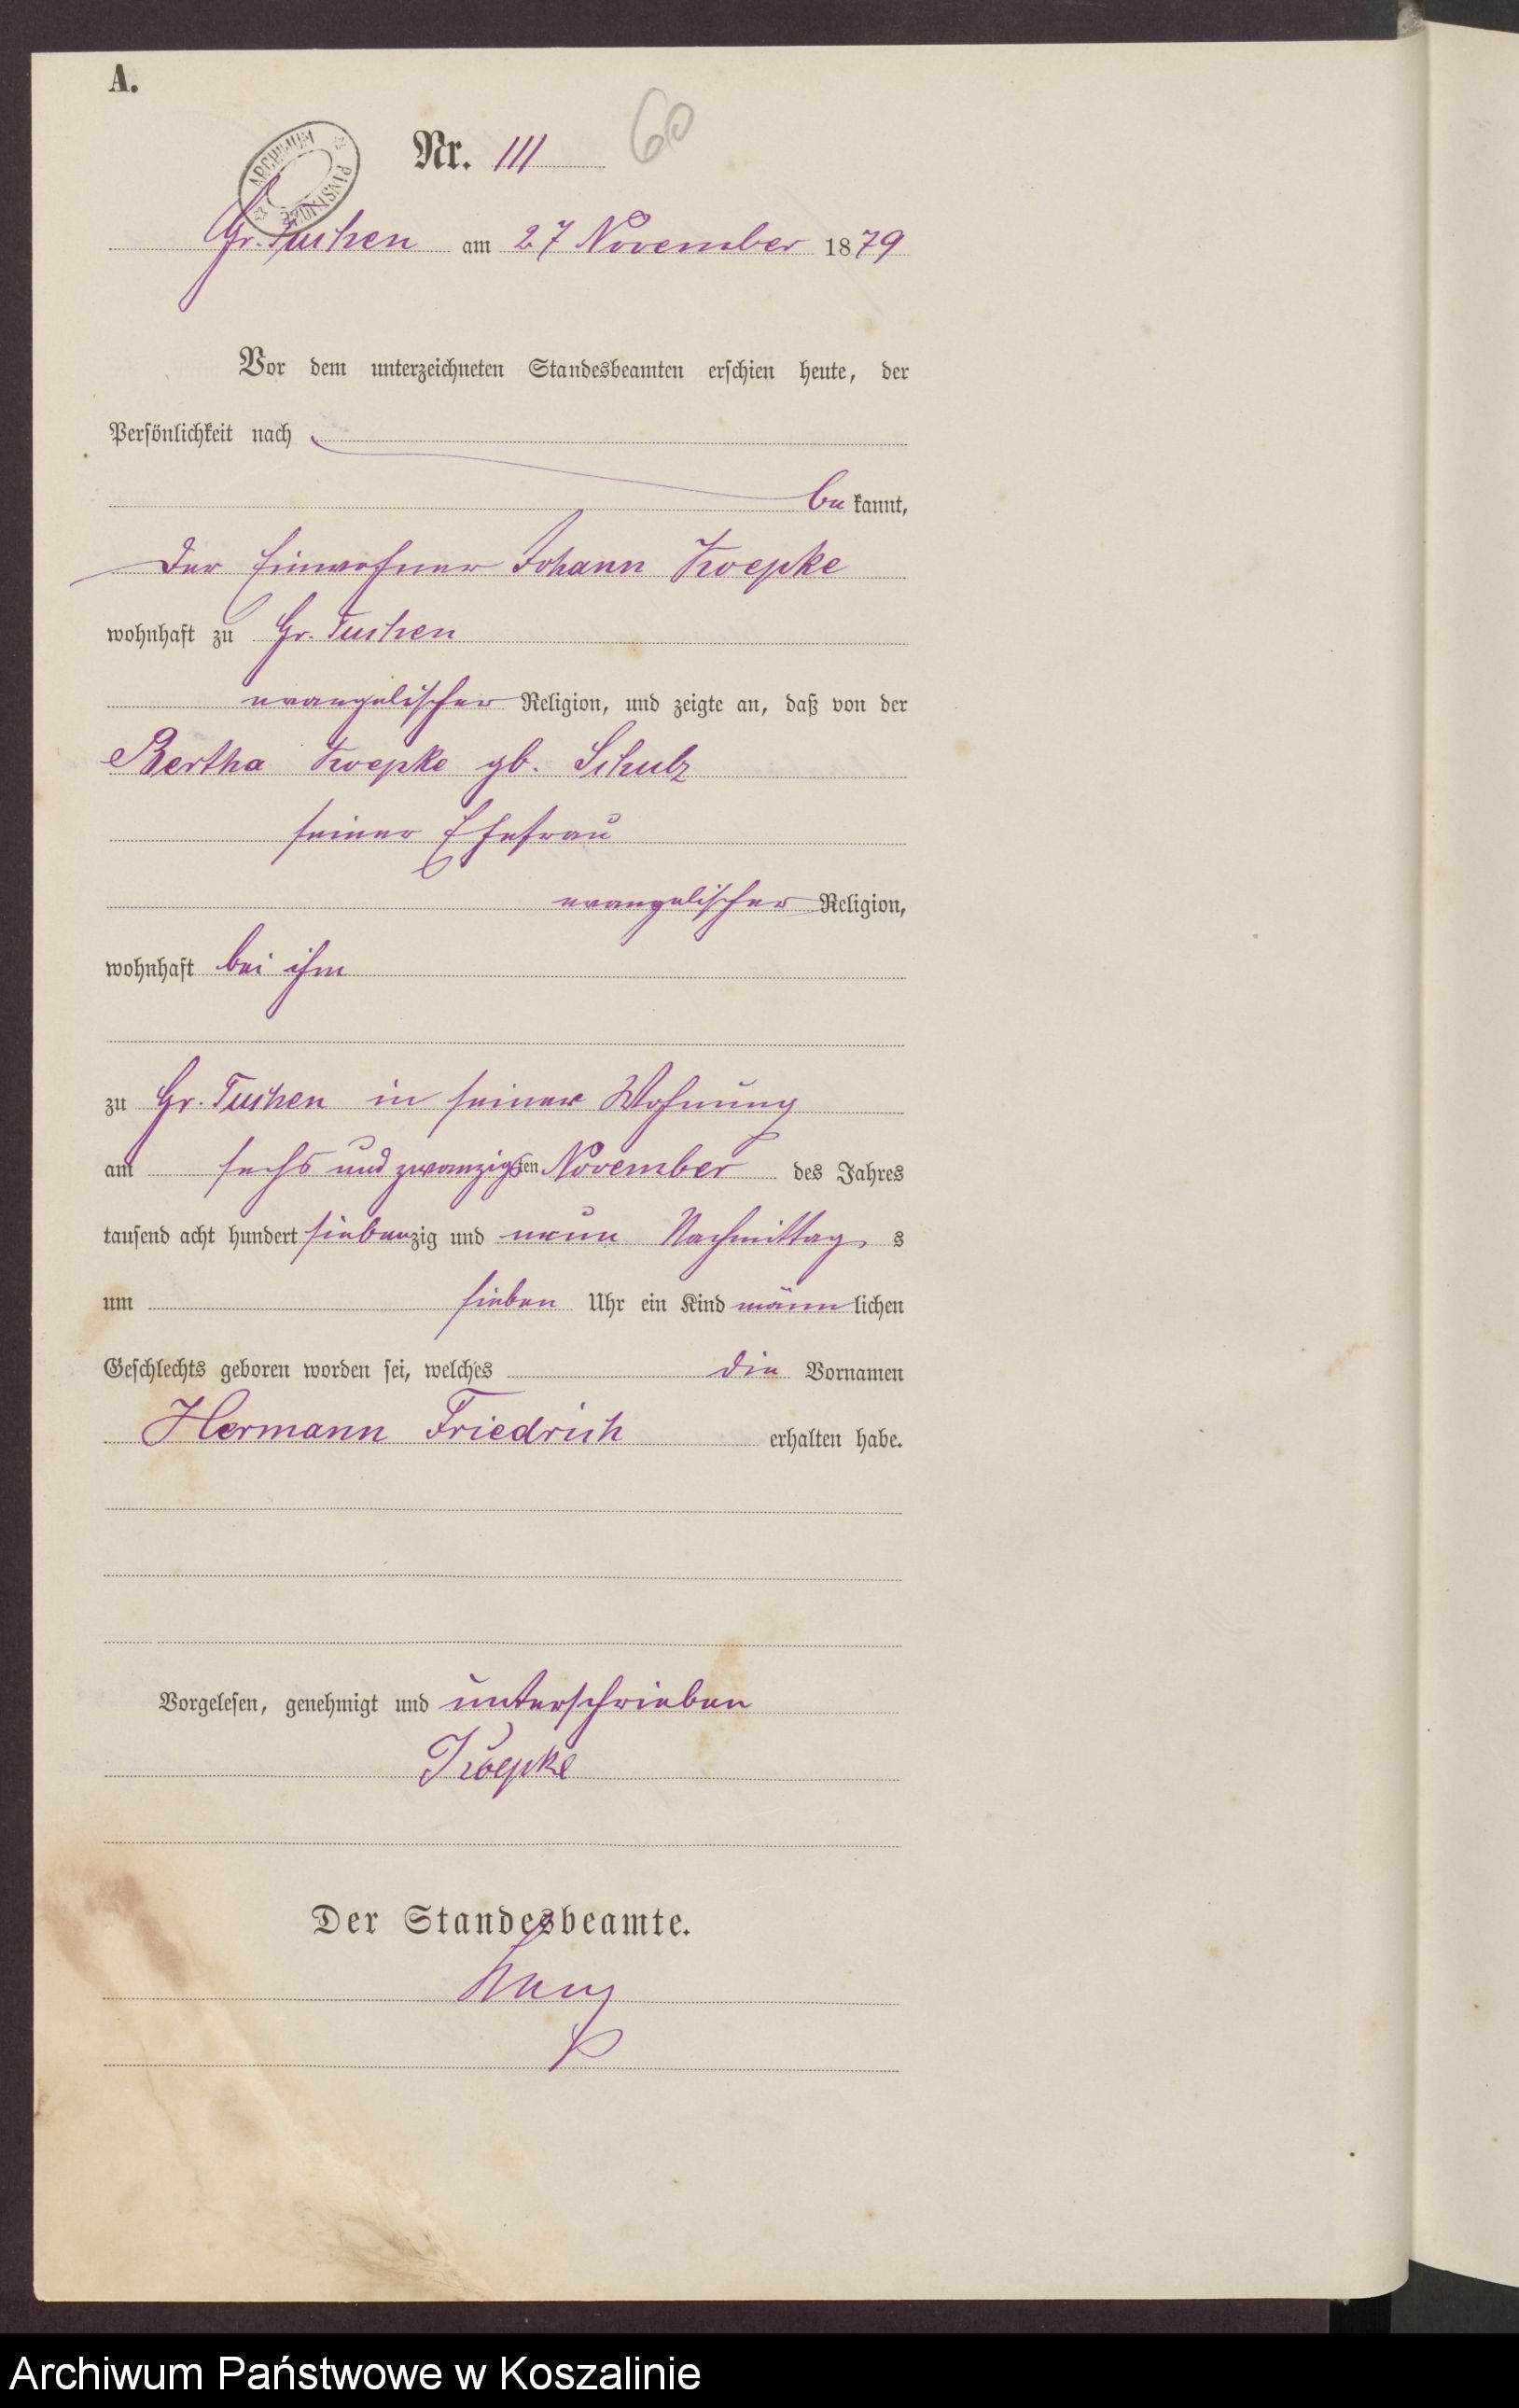 A.
Nr. 111 60
ARCHIWUM PAŃSTWOWE
Gr. Tuchen am 27 November 1879
Vor dem unterzeichneten Standesbeamten erschien heute, der
Persönlichkeit nach
be kannt,
der Einwohner Johann Koepke
wohnhaft zu Gr. Tuchen
evangelischer Religion, und zeigte an, daß von der
Bertha Koepke gb. Schulz
seiner Ehefrau
evangelischer Religion,
wohnhaft bei ihm
zu Gr. Tuchen in seiner Wohnung
am sechs und zwanzigsten November des Jahres
tausend acht hundert siebenzig und neun Nachmittag s
um sieben Uhr ein Kind männlichen
Geschlechts geboren worden sei, welches die Vornamen
Hermann Friedrich erhalten habe.
Vorgelesen, genehmigt und unterschrieben
Koepke
Der Standesbeamte.
Archiwum Państwowe w Koszalinie